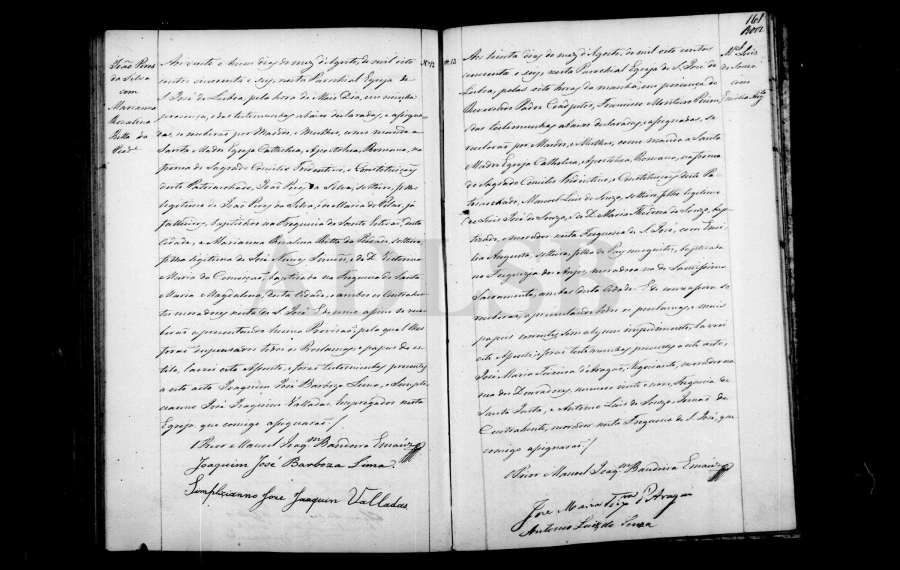 João Pires
da Silva
com
Marianna
Rozalina
Ritta da
Aos vinte e nove dias do mez d'Agosto, de mil oito
centos cincoenta e seis, nesta Parochial Egreja de
S. José de Lisboa, pela hora do Meio Dia, em minha
presença, e das testemunhas abaixo declaradas, e assigna
das, se receberão por Marido, e Mulher, como manda a
Santa Madre Egreja Catholica, Apostolica, Romana, na
forma do Sagrado Concilio Tridentino, e Constituições
deste Patriarchado, João Pires da Silva, solteiro, filho
legitimo de João Pires da Silva, e Maria do Pilar, já
fallecidos, baptizado na Freguezia de Santo Estevão, desta
Cidade, e Marianna Rozalina Ritta da solteira
filha legitima de José e de D. Victorina
Maria da Conceição, baptizada na Freguezia de Santa
Maria Magdalena, desta Cidade, e ambos os Contrahen
tes moradores nesta de S. José. E de como assim se rece
berão apresentando huma Provisão, pela qual lhes
forão dispensados todos os Proclamas, e papeis do es
tilo, lavrei este Assento, e forão testemunhas prezentes
a este acto Joaquim José Barboza Lima, e Simpli
cianno José Joaquim Valladas Empregados nesta
Egreja, que comigo assignarão.
O Prior Manoel Joaqm Bandeira
Joaquim José Barboza Lima.
Simplicianno Jose Joaquin Valladas
Nº 12
161
Nº 13
Aos trinta dias do mez d'Agosto, de mil oito centos
cincoenta e seis, nesta Parochial Egreja de S. José de
Lisboa, pelas oito horas da manhã, em presença do
Reverendo Padre Coadjutor, Francisco Monteiro
e das testemunhas abaixo declaradas, e assignadas, se
receberão por Marido, e Mulher, como manda a Santa
Madre Egreja Catholica, Apostolica, Romana, na forma
do Sagrado Concilio Tridentino, e Constituições deste Pa
triarchado, Manoel Luis de Souza, solteiro, filho legitimo
de Luis José de Souza, e de D. Maria de Souza, bap
tizado, e morador nesta Freguezia de S. José, com Emi
lia Augusta, solteira, filha de Pays incognitos, baptizada
na Freguezia dos Anjos, moradora na do Santissimo
Sacramento, ambas desta Cidade. E de como assim se
receberão, apresentando todos os proclamas, e mais
papeis correntes, sem algum impedimento, lavrei
este Assento; forão testemunhas prezentes a este acto,
José Maria de Aragão, Negociante, morador na
rua dos Douradores, numero vinte e nove, Freguezia de
Santa Justa, e Antonio Luis de Souza, Irmão do
Contrahente, morador nesta Freguezia de S. José, que
comigo assignarão.
O Prior Manoel Joaqm Bandeira
Jose Maria
Antonio Luis de Souza
Mel Luis
de Souza
com
Emilia Augta